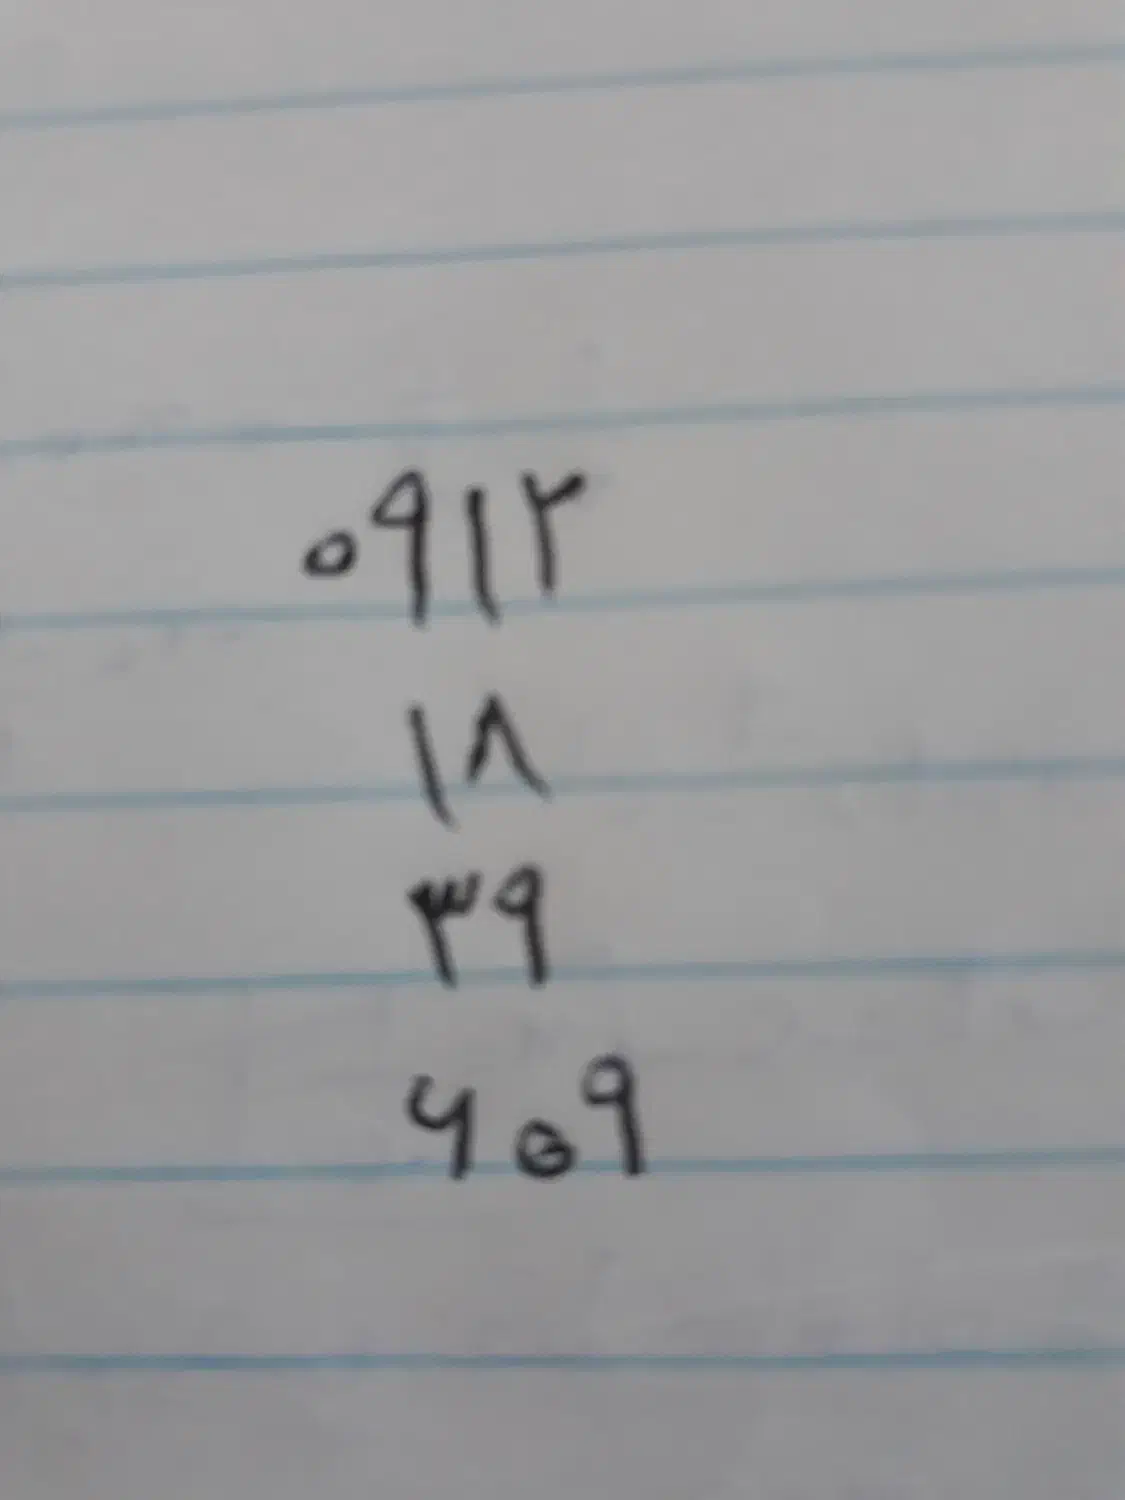 ۰۹۱۲
۱۸
۳۹
۶۵۹